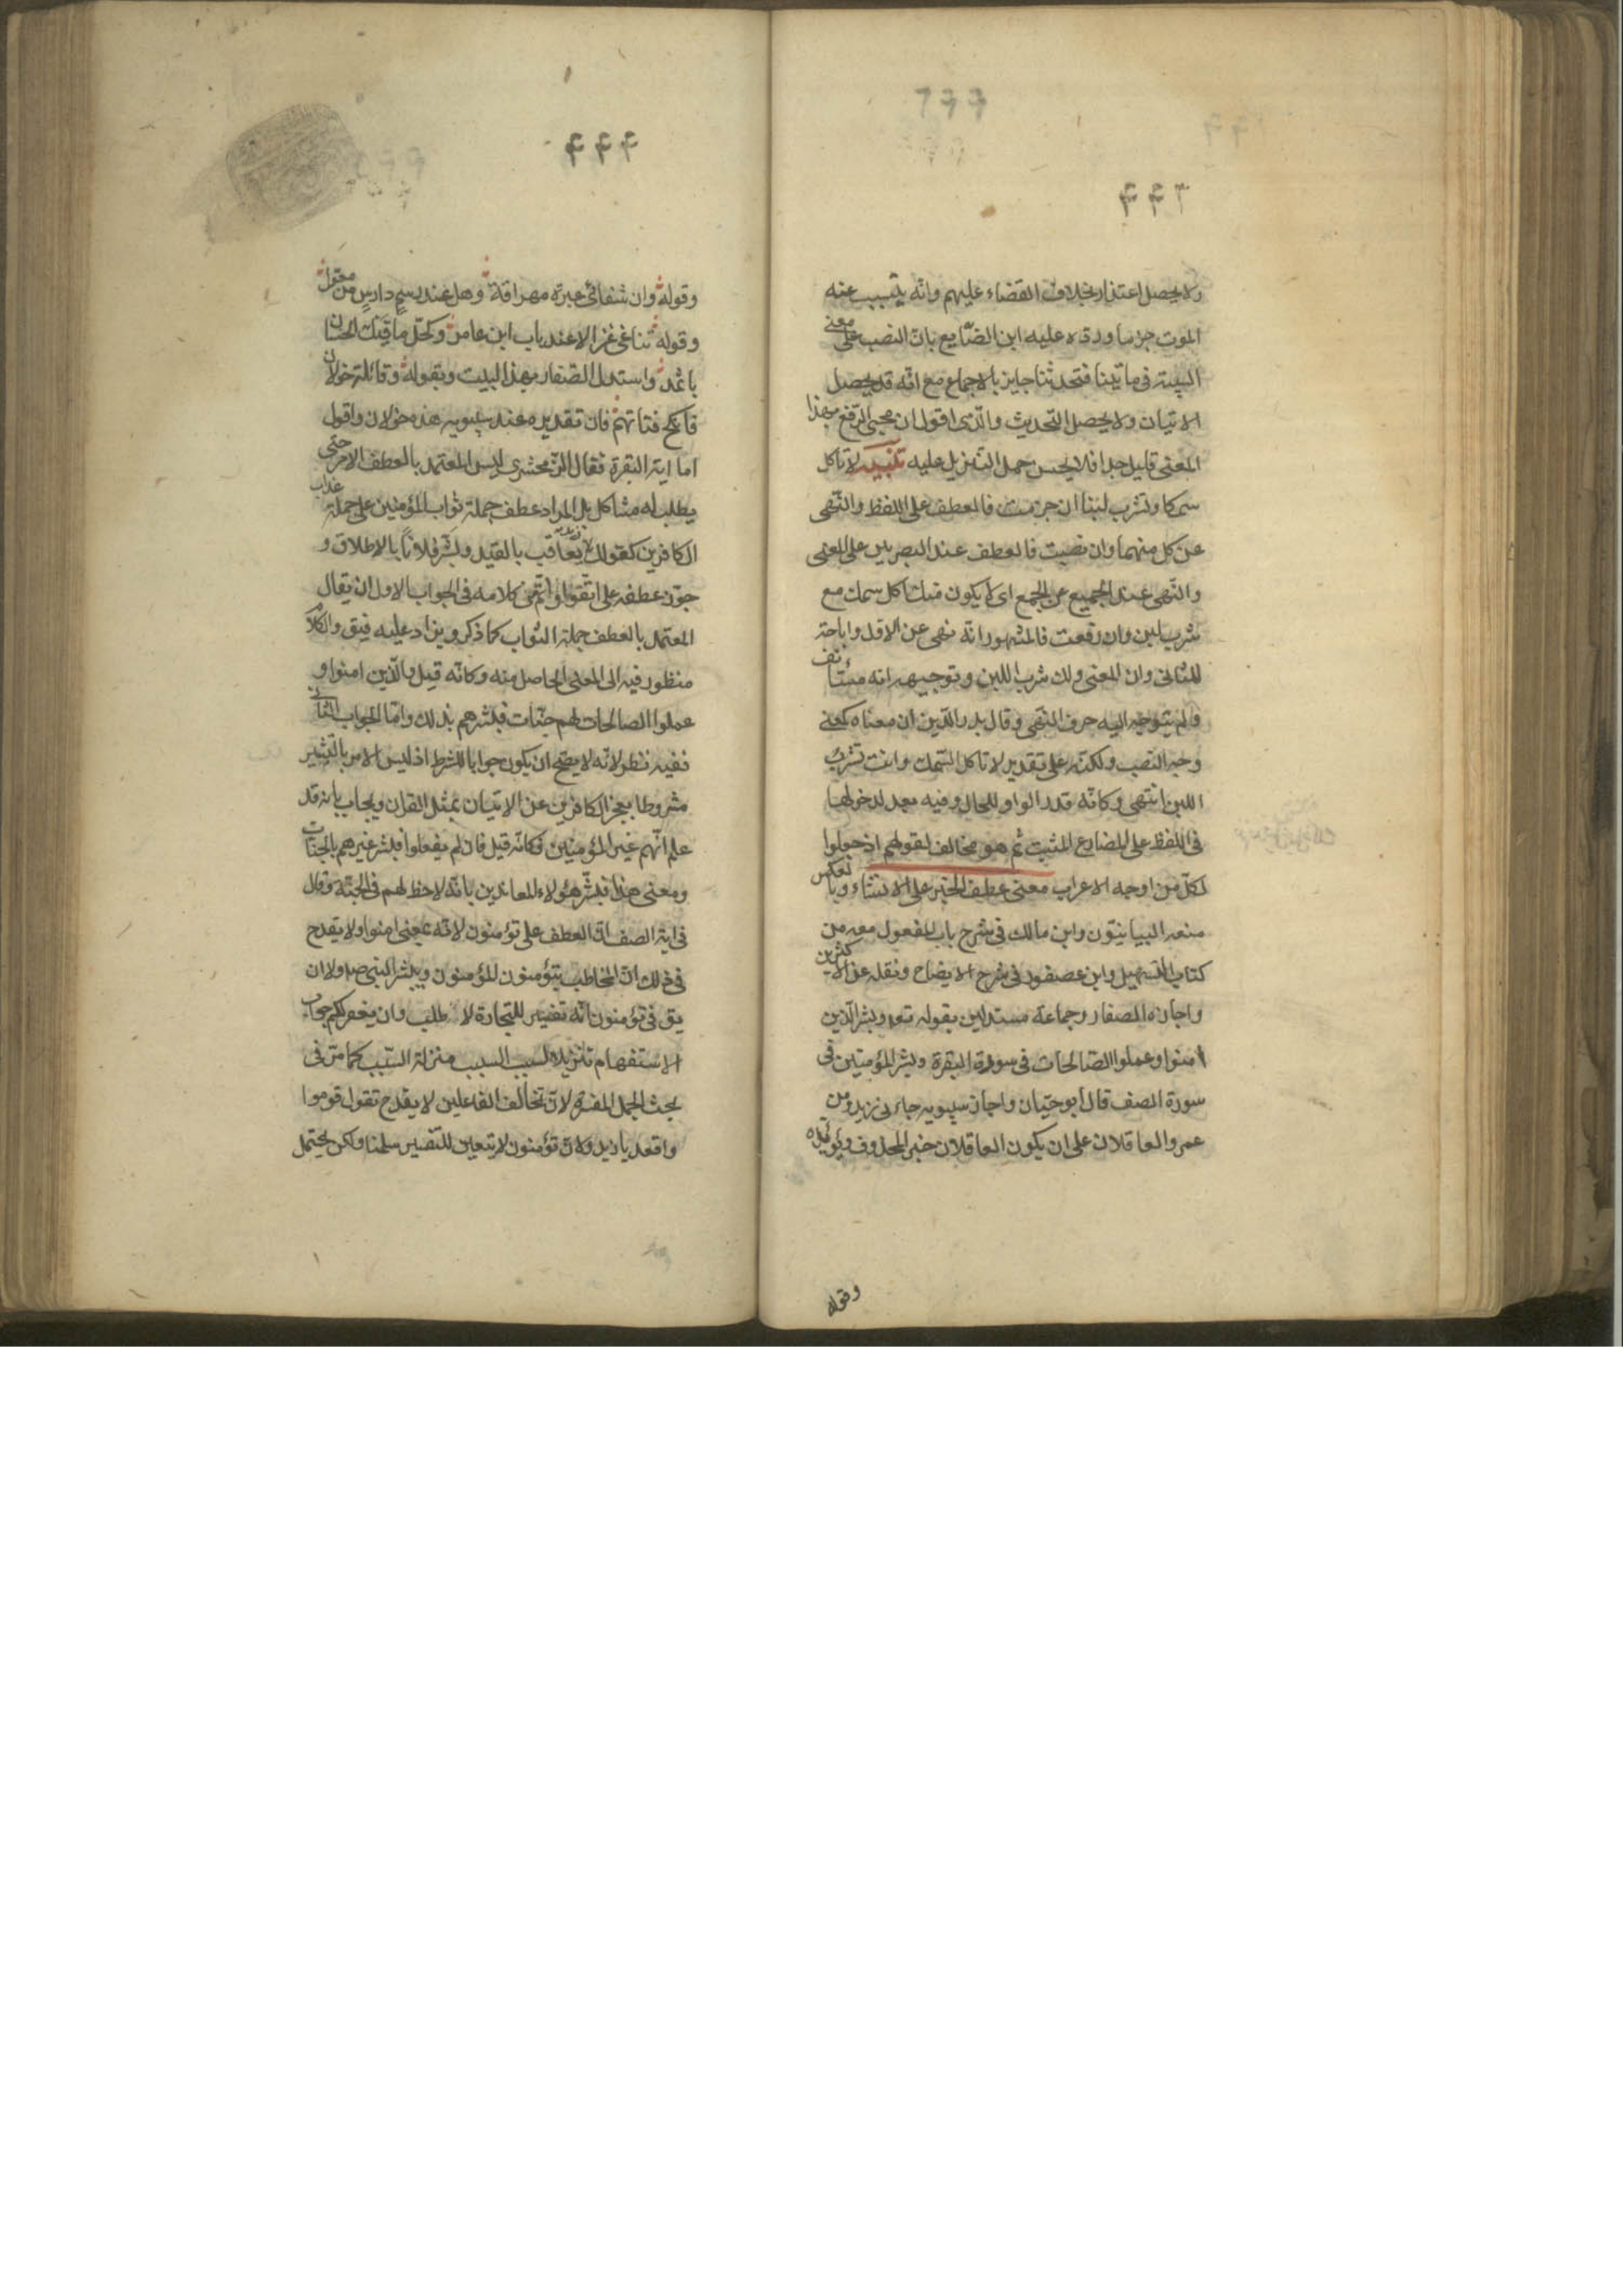 ولا يحصل اعتذار بخلاف القضاء عليهم وانه يتسبب عنه
الموت جزما ورده عليه ابن الضايع بان النصب على معنى
السببية فى ما تاتينا فتحدثنا جايز بالاجماع مع انه قد يحصل
الاتيان ولا يحصل التحديث والذى اقول ان مجئ الرفع بهذا
المعنى قليل جدا فلا يحسن حمل التنزيل عليه تنبيه لا تاكل
سمكا وتشرب لبنا ان جزمت فالعطف على اللفظ والنهى
عن كل منهما وان نصبت فالعطف عند البصريين على المعنى
والنهى عند الجميع عن الجمع اى لا يكون منك اكل سمك مع
شرب لبن وان رفعت فالمشهور انه نهى عن الاول واباحة
للثانى وان المعنى ولك شرب اللبن وتوجيهه انه مستانف
فلم يتوجه اليه حرف النهى وقال بدر الدين ان معناه كمعنى
وجه النصب ولكنه على تقدير لا تاكل السمك وانت تشرب
اللبن انتهى وكانه قدر الواو للحال وفيه بعد لدخولها
فى اللفظ على المضارع المثبت ثم هو مخالف لقولهم اذ جعلوا
لكل من اوجه الاعراب معنى عطف الخبر على الانشاء وبالعكس
منعه البيانيون وابن مالك فى شرح باب المفعول معه من
كتاب التسهيل وابن عصفور فى شرح الايضاح ونقله عن الاكثرين
واجازه الصفار وجماعة مستدلين بقوله تعه وبشر الذين
امنوا وعملوا الصالحات فى سورة البقرة وبشر المؤمنين فى
سورة الصف قال ابو حيان واجاز سيبويه جاءنى زيد ومن
عمرو العاقلان على ان يكون العاقلان خبر المحذوف ويؤيده
وقوله
۴۴۴
وقوله وان شفائى عبرة مهراقة وهل عند رسم دارس من معول
وقوله تناغى غزالا عند باب ابن عامر وكحل ماقيك الحسان
باثمد واستدل الصفار بهذا البيت وبقوله وقائلة خولان
فانكح فتاتهم فان تقديره عند سيبويه هذه خولان واقول
اما اية البقرة فقال الزمحشرى ليس المعتمد بالعطف الامر حتى
يطلب له مشاكل بل المراد عطف جملة ثواب المؤمنين على جملة عذاب
الكافرين كقولك زيد يعاقب بالقيد وبشر فلانا بالاطلاق و
جوز عطفه على اتقوا واتم من كلامه فى الجواب الاول ان يقال
المعتمد بالعطف جملة الثواب كما ذكر ويزاد عليه فيق والكلام
منظور فيه الى المعنى الحاصل منه وكانه قيل والذين امنوا و
عملوا الصالحات لهم جنات فبشرهم بذلك واما الجواب الثانى
ففيه نظر لانه لا يصح ان يكون جوابا للشرط اذ ليس الامر بالتبشير
مشروطا بعجز الكافرين عن الاتيان بمثل القران ويجاب بانه قد
علم انهم غير المؤمنين فكانه قيل فان لم يفعلوا فبشر غيرهم بالجنات
ومعنى هذا فبشر هؤلاء المعاندين بانه لا حظ لهم فى الجنة وقال
فى اية الصف ان العطف على تؤمنون لانه بمعنى امنوا ولا يقدح
فى ذلك ان المخاطب بتؤمنون المؤمنون وببشر النبى ص ولا ان
يق فى تؤمنون انه تفسير للتجارة لا طلب وان يغفر لكم جواب
الاستفهام تنزيلا لسبب السبب منزلة السبب كما مر فى
بحث الجمل المفسرة لان تخالف الفاعلين لا يقدح تقول قوموا
واقعد يا زيد ولان تؤمنون لا يتعين للتفسير سلمنا ولكن يحتمل